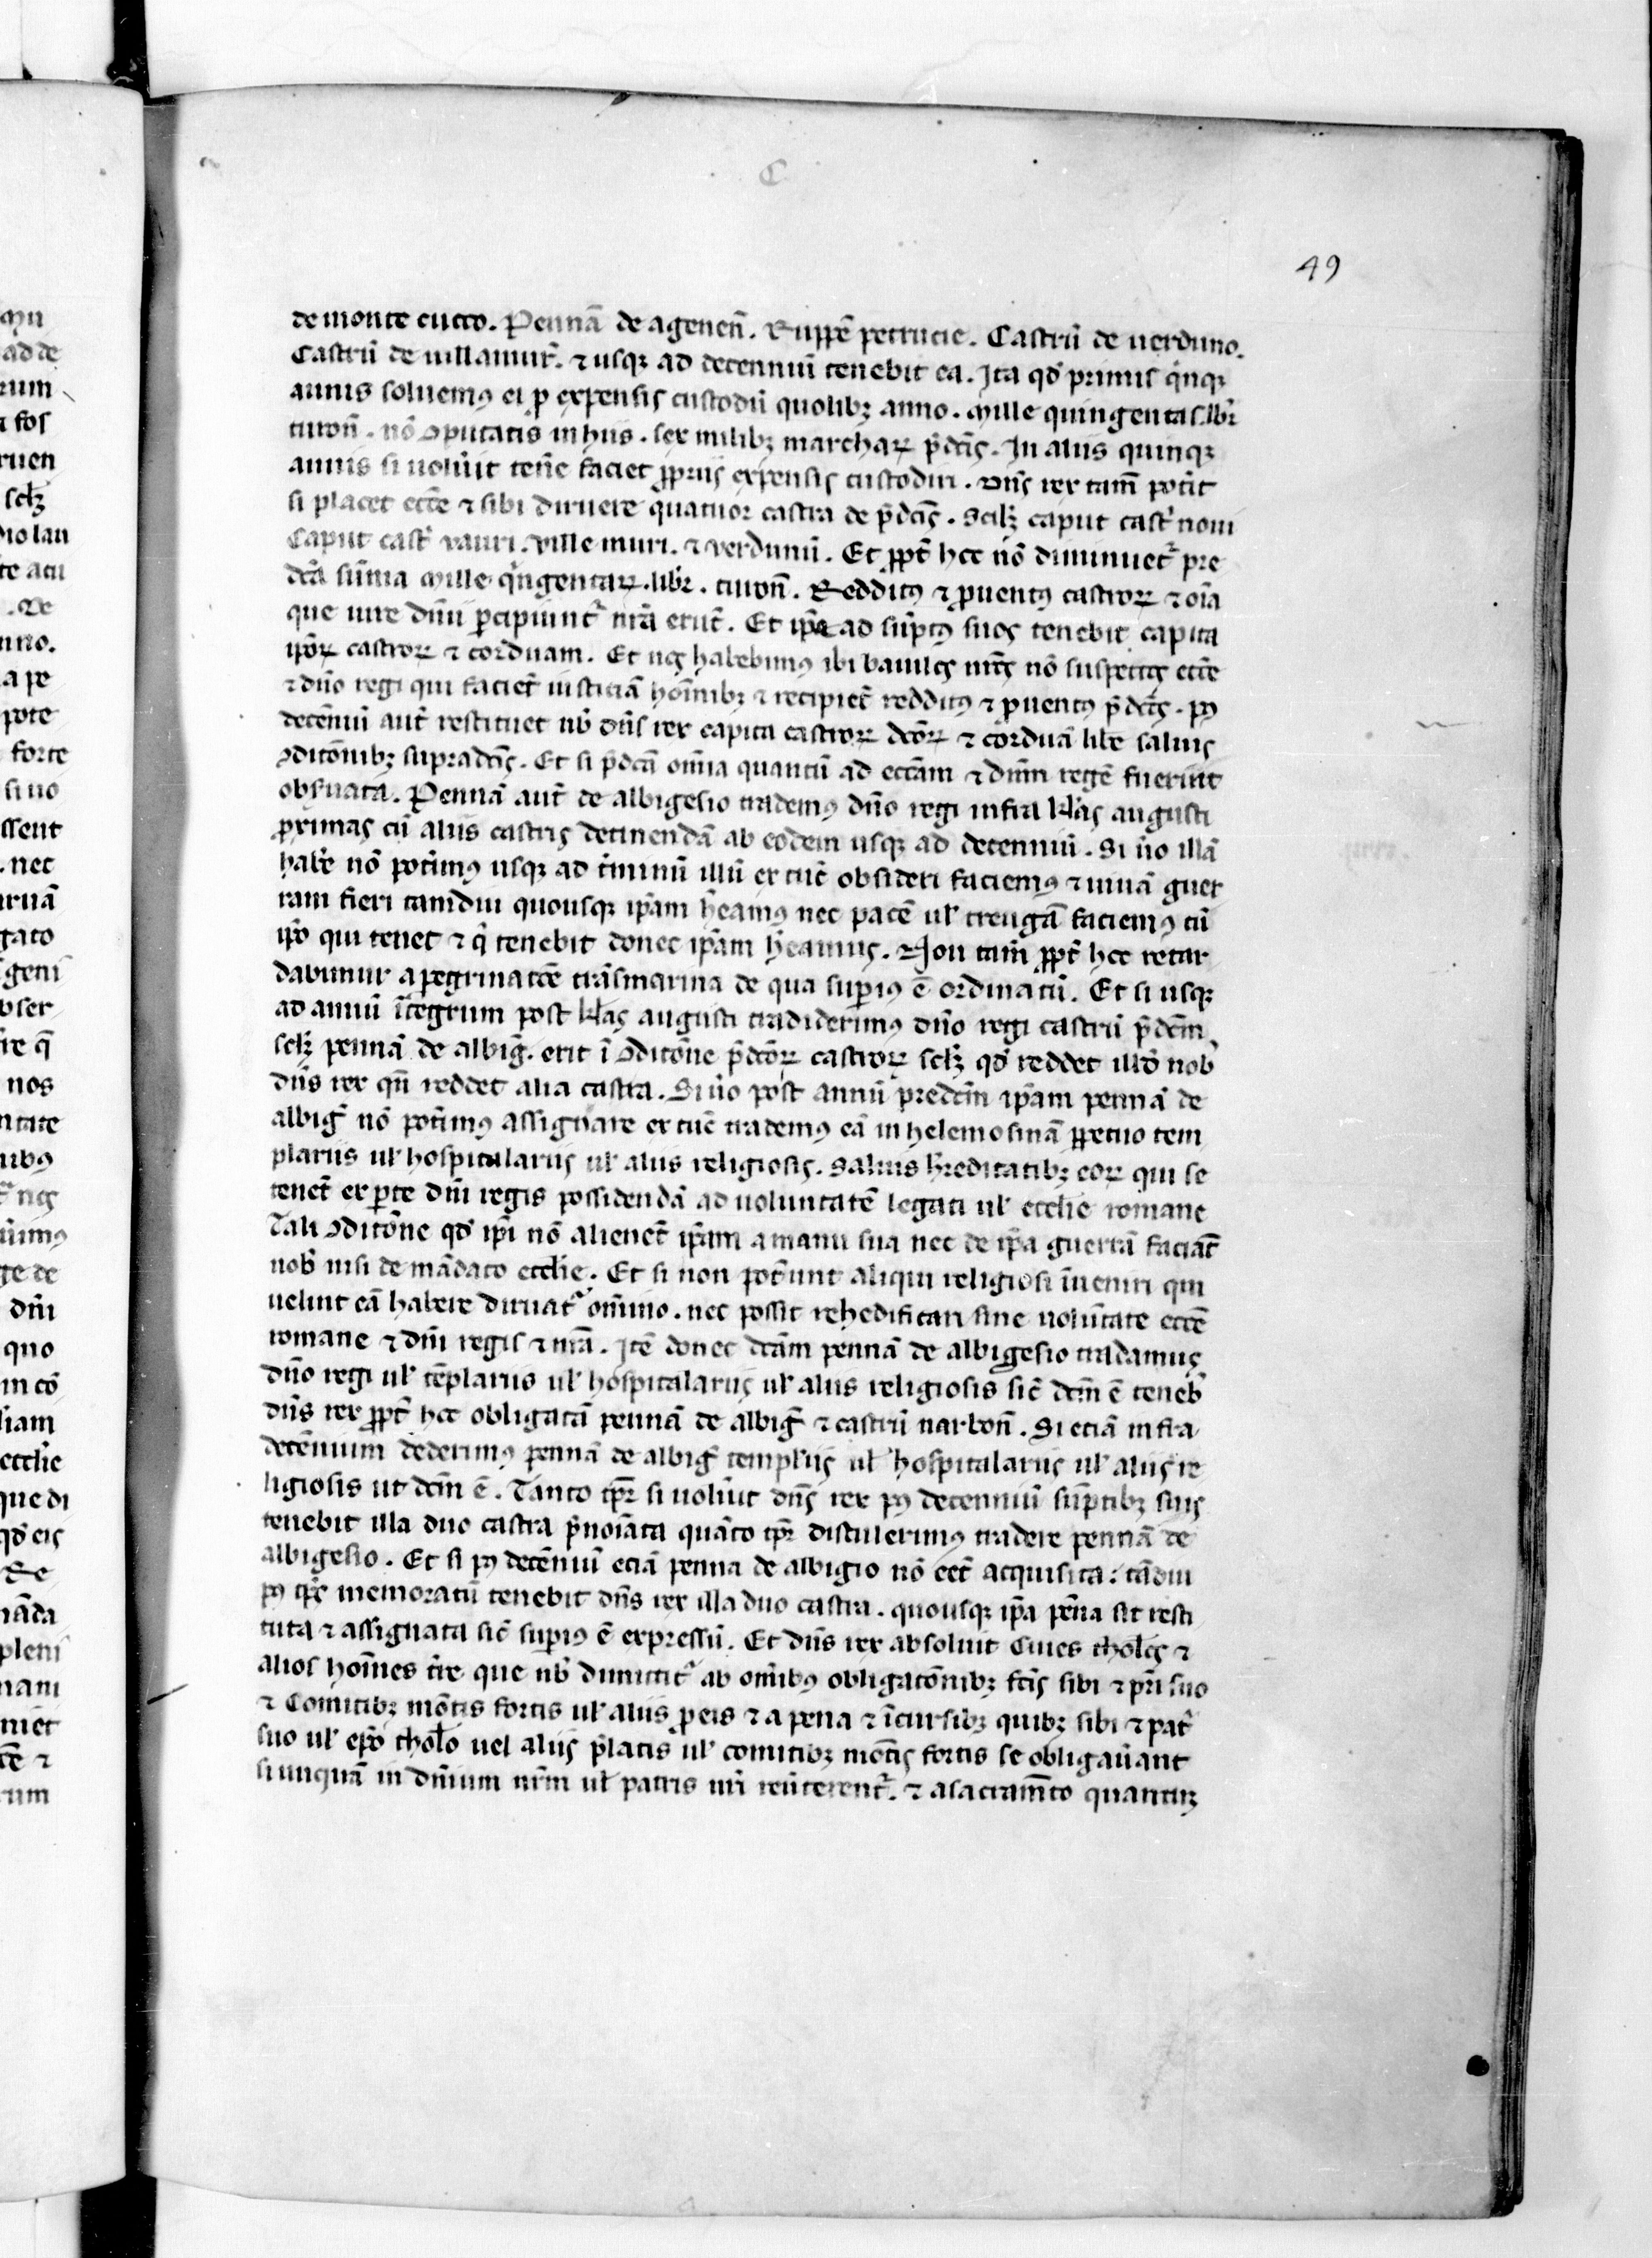 49
de monte cucco. Pennā de agenen̄. Ruppē petrucie. Castrū de uerduno.
Castrū de uillamur̄. ⁊ usqꝫ ad decenniū tenebit ea. Ita qđ primis q̇nqꝫ
annis soluemꝰ ei ꝓ expensis custodū quolibꝫ anno. Mille quingentas libr̄
turon̄. nō ꝯputatis in hiis. sex milibꝫ marcharꝝ p̄dc̄is. In aliis quinqꝫ
annis si uolūit ten̄e faciet ꝓpriis expensis custodiri. Dn̄s rex tam̄ pot̄it
si placet ecc̄e ⁊ sibi diruere quatuor castra de p̄dc̄is. Scilꝫ caput castͬ noui
Caput castͬ vauri. ville muri. ⁊ verdunū. Et ꝓpt̄ hec nō diminuetͬ pre
dc̄a sum̄a Mille q̇ngentarꝝ. libr̄. turon̄. Redditꝰ ⁊ ꝓuentꝰ castrorꝝ ⁊ oīa
que iure dn̄ii ꝑcipiuntͬ nr̄a erūt. Et ip̄e ad sūptꝰ suos tenebit capita
ip̄orꝝ castrorꝝ ⁊ corduam. Et nos habebimus ibi baiulos nr̄os nō suspectos ecc̄e
⁊ dn̄o regi qui faciēt iusticiā hoīnibꝫ ⁊ recipiēt redditꝰ ⁊ ꝓuentꝰ p̄dc̄os. pꝰ
decēniū aut̄ restituet nb̄ dn̄s rex capita castrorꝝ dc̄orꝝ ⁊ corduā lib̄e saluis
ꝯditōnibꝫ supradc̄is. Et si p̄dc̄a om̄ia quantū ad ecc̄am ⁊ dn̄m regē fuerint
obs̄uata. Pennā aut̄ de albigesio trademꝰ dn̄o regi infra kl̄as augusti
ꝓximas cū aliis castris detinendā ab eodem usqꝫ ad decenniū. Si ū̄o illā
hab̄e nō pot̄imꝰ usqꝫ ad t̄minū illū ex tūc obsideri faciemꝰ ⁊ uiuā guer
ram fieri tamdiu quousqꝫ ip̄am h̄eamꝰ nec pacē ul̄ treugā faciemꝰ cū
ip̄o qui tenet ⁊ q̇ tenebit donec ip̄am h̄eamus. Non tam̄ ꝓpt̄ hec retar
dabimur a ꝑegrinatōe trāsmarina de qua suꝑius ē ordinatū. Et si usqꝫ
ad annū ītegrum post kl̄as augusti tradiderimus dn̄o regi castrū p̄dc̄m
scilꝫ pennā de albiḡ. erit ī ꝯditōne p̄dc̄orꝝ castrorꝝ scilꝫ qđ reddet illđ nob̄
dn̄s rex qn̄ reddet alia castra. Si ū̄o post annū predc̄m ip̄am pennā de
albiḡ nō pot̄imꝰ assignare ex tūc trademꝰ eā in helemosinā ꝑpetuo tem
plariis ul̄ hospitalariis ul̄ aliis religiosis. saluis h̄editatibꝫ eorꝝ qui se
tenēt ex ꝑte dn̄i regis possidendā ad uoluntatē legati ul̄ eccl̄ie romane
Tali ꝯditōne qđ ip̄i nō alienēt ip̄am a manu sua nec de ip̄a guerrā faciāt
nob̄ nisi de mādato eccl̄ie. Et si non pot̄unt aliqui religiosi īueniri qui
uelint eā habere diruatͬ om̄ino. nec possit rehedificari sine uolūtate ecc̄e
romane ⁊ dn̄i regis ⁊ nr̄a. Itē donec dc̄am pennā de albigesio tradamus
dn̄o regi ul̄ tēplariis ul̄ hospitalariis ul̄ aliis religiosis sic̄ dc̄m ē teneb̄
dn̄s rex ꝓpt̄ hec obligatā pennā de albiḡ ⁊ castrū narbon̄. Si etiā infra
decēnium dederimꝰ pennā de albiḡ templ̄iis ul̄ hospitalariis ul̄ aliis re
ligiosis ut dc̄m ē. Tanto tꝑe si uolūit dn̄s rex pꝰ decenniū sūptibꝫ suis
tenebit illa duo castra p̄noīata quāto tꝑe distulerimꝰ tradere pennā de
albigesio. Et si pꝰ decēniū etiā penna de albigio nō eēt acquisita: tādiu
pꝰ tꝑs memoratū tenebit dn̄s rex illa duo castra. quousqꝫ ip̄a pēna sit resti
tuta ⁊ assignata sic̄ suꝑius ē expressū. Et dn̄s rex absoluit Ciues thol̄os ⁊
alios hoīnes t̄re que nb̄ dimittitͬ ab om̄ibus obligatōnibꝫ fc̄is sibi ⁊ pr̄i suo
⁊ Comitibꝫ mōtis fortis ul̄ aliis ꝓ eis ⁊ a pena ⁊ īcursibꝫ quibꝫ sibi ⁊ patͥ
suo ul̄ ep̄o thol̄o uel aliis p̄latis ul̄ comitibꝫ mōtis fortis se obligaūant
si unquā in dn̄ium nr̄m ul̄ patris nr̄i reūterentͬ. ⁊ a sacramēto quantuꝫ